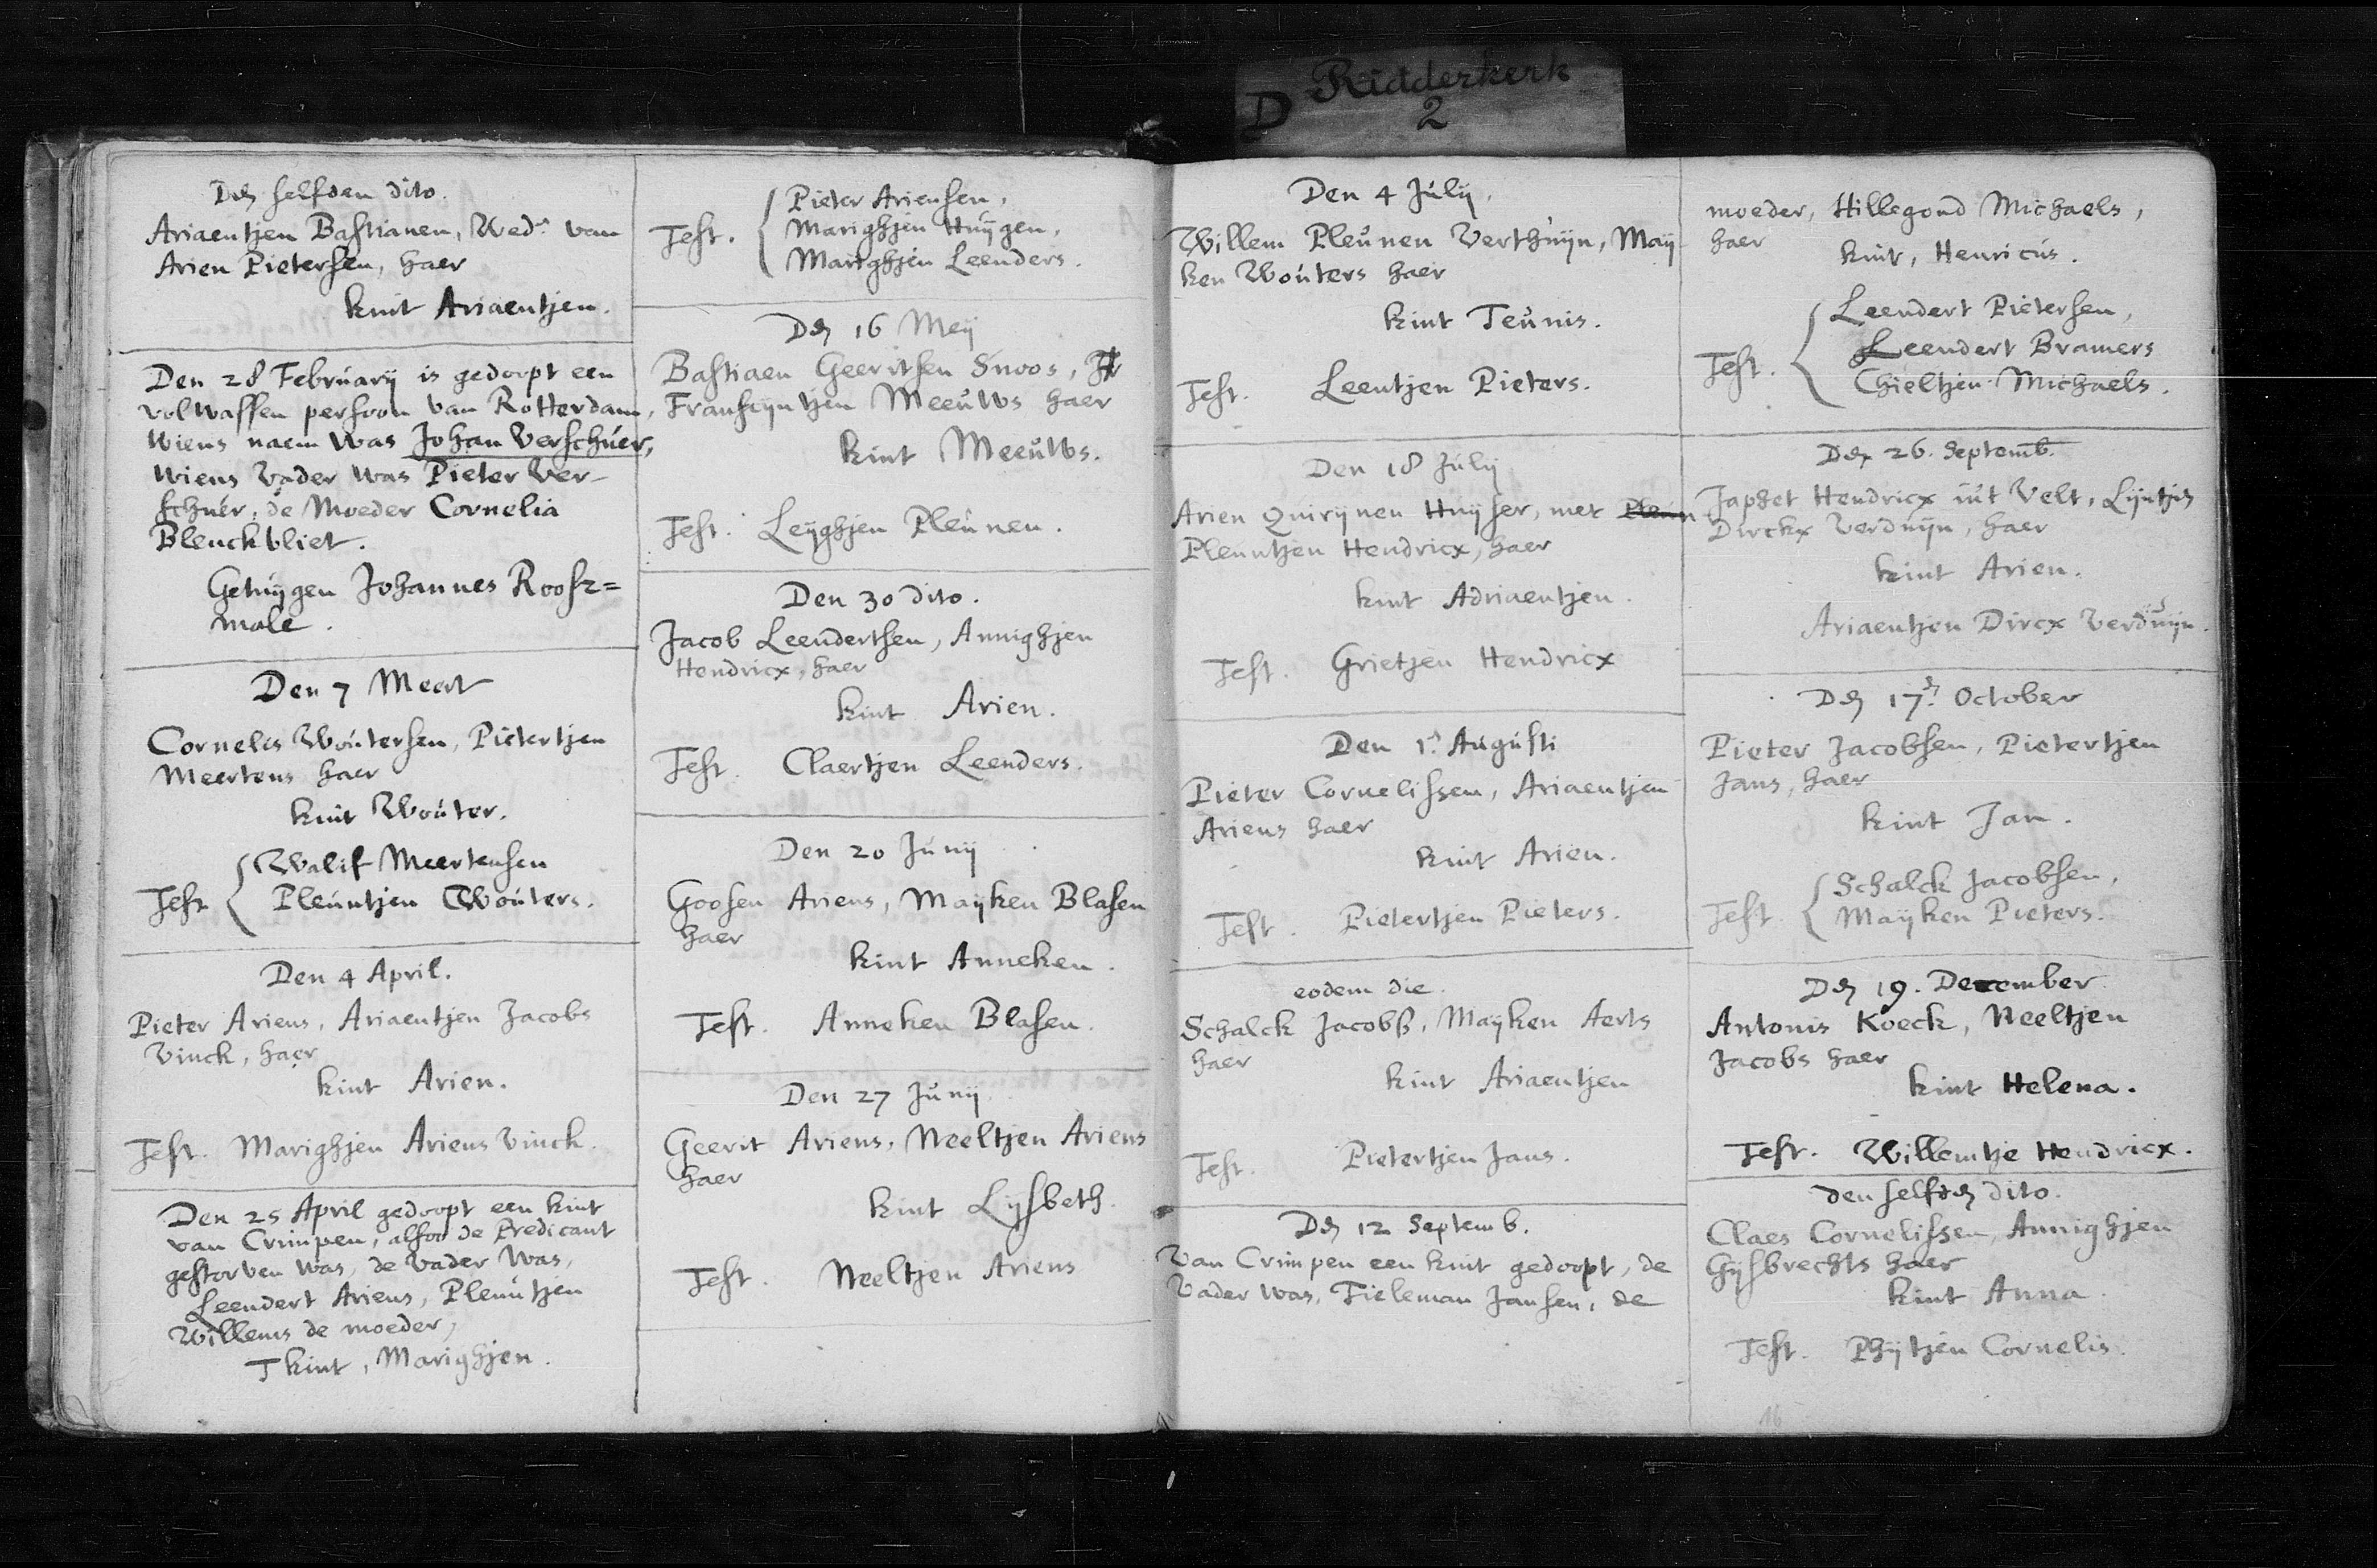 D Ridderkerk
2
Den selfden dito.
Ariaentjen Bastianen, Wed.ᵉ van
Arien Pietersen, haer
kint Ariaentjen.
Den 28 February is gedoopt een
volwassen persoon van Rotterdam,
wiens naem was Johan Verschuer,
wiens vader was Pieter Ver-
schuer, de Moeder Cornelia
Blenckvliet.
Getuygen Johannes Roosz=
male.
Den 7 Meert
Cornelis Woutersen, Pietertjen
Meertens haer
kint Wouter.
Test. Walif Meertensen
Pleuntjen Wouters.
Den 4 April.
Pieter Ariens, Ariaentjen Jacobs
Vinck, haer
kint Arien.
Test. Marighjen Ariens Vinck.
Den 25 April gedoopt een kint
van Crimpen, alsoo de Predicant
gestorven was, de vader was,
Leendert Ariens, Pleuntjen
Willems de moeder,
T kint, Marighjen.
Test. Pieter Ariensen,
Marighjen Huygen,
Marighjen Leenders.
Den 16 Mey
Bastiaen Geeritsen Snoos,
Franscyntjen Meeuws haer
kint Meeuws.
Test. Leyghjen Pleunen.
Den 30 dito.
Jacob Leendertsen, Annighjen
Hendricx, haer
kint Arien.
Test. Claertjen Leenders.
Den 20 Juny
Goosen Ariens, Mayken Blasen
haer
kint Anneken.
Test. Anneken Blasen.
Den 27 Juny
Geerit Ariens, Neeltjen Ariens
haer
kint Lysbeth.
Test. Neeltjen Ariens
Den 4 July.
Willem Pleunen Verthuyn, May
ken Wouters haer
kint Teunis.
Test. Leentjen Pieters.
Den 18 July
Arien Quirynen Huyser, met
Pleuntjen Hendricx, haer
kint Adriaentjen.
Test. Grietjen Hendricx
Den 1.ⁿ Augusti
Pieter Cornelissen, Ariaentjen
Ariens haer
kint Arien.
Test. Pietertjen Pieters.
eodem die.
Schalck Jacobß, Mayken Aerts
haer
kint Ariaentjen
Test. Pietertjen Jans.
Den 12 Septemb.
Van Crimpen een kint gedoopt, de
vader was, Tieleman Jansen, de
moeder, Hillegond Michaels,
haer
kint, Henricus.
Test. Leendert Pietersen,
Leendert Bramers
Chieltjen Michaels.
Den 26. Septemb.
Japhet Hendricx iut Velt, Lijntjen
Dirckx Verduyn, haer
kint Arien.
Ariaentjen Dircx Verduyn.
Den 17.ᵉⁿ October
Pieter Jacobsen, Pietertjen
Jans, haer
kint Jan.
Test. Schalck Jacobsen,
Mayken Pieters.
Den 19. December
Antonis Koeck, Neeltjen
Jacobs haer
kint Helena.
Test. Willemtje Hendricx.
den selfden dito.
Claes Cornelissen, Annighjen
Gysbrechts haer
kint Anna.
Test. Phytjen Cornelis.
16